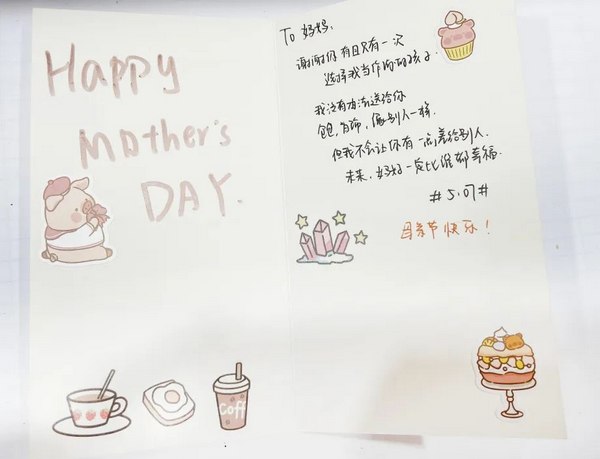 Happy
Mother's
DAY.
To 妈妈:
谢谢你有且只有一次
选择我当作你的孩子.
我没有办法送给你
包, 首饰, 像别人一样.
但我不会让你有一点差给别人.
未来, 妈妈一定比谁都幸福.
#5.07#
母亲节快乐!
Coff